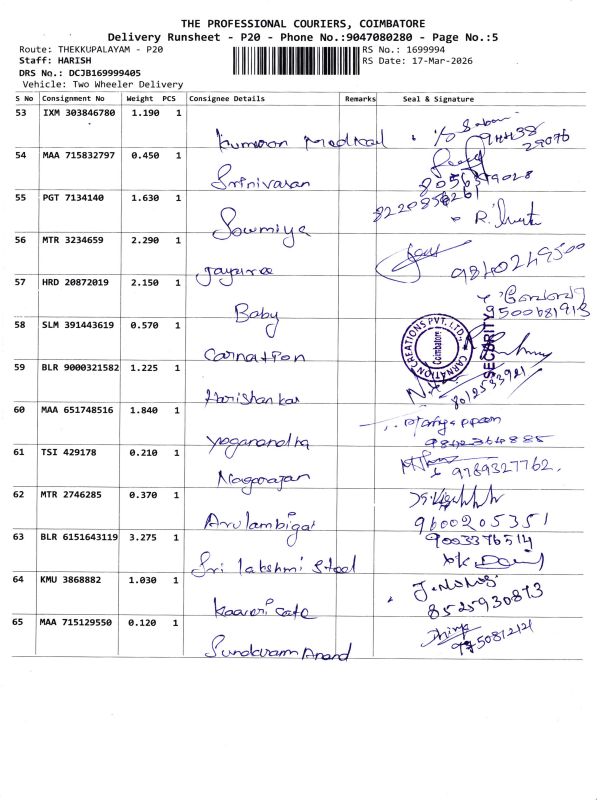 THE PROFESSIONAL COURIERS, COIMBATORE
Delivery Runsheet - P20 - Phone No.:9047080280 - Page No.:5
Route: THEKKUPALAYAM - P20
RS No.: 1699994
Staff: HARISH
RS Date: 17-Mar-2026
DRS No.: DCJB169999405
Vehicle: Two Wheeler Delivery
S No Consignment No Weight PCS Consignee Details Remarks Seal & Signature
53 IXM 303846780 1.190 1
Kumaran Medical
94438
29076
54 MAA 715832797 0.450 1
Srinivasan
8056379028
55 PGT 7134140 1.630 1
8220856261
Sowmiya
56 MTR 3234659 2.290 1
Jayasree
9840249500
57 HRD 20872019 2.150 1
Baby
9500681913
58 SLM 391443619 0.570 1
Carnation
CARNATION CREATIONS PVT. LTD.
Coimbatore
SECURITY
59 BLR 9000321582 1.225 1
Harishankar
8012533921
60 MAA 651748516 1.840 1
Yoganandha
9842364885
61 TSI 429178 0.210 1
Nagarajan
9789327762.
62 MTR 2746285 0.370 1
Arulambigai
9600205351
63 BLR 6151643119 3.275 1
9003376514
Sri lakshmi steel
64 KMU 3868882 1.030 1
Kaaveri cafe
8525930873
65 MAA 715129550 0.120 1
Sundaram Anand
9750812121